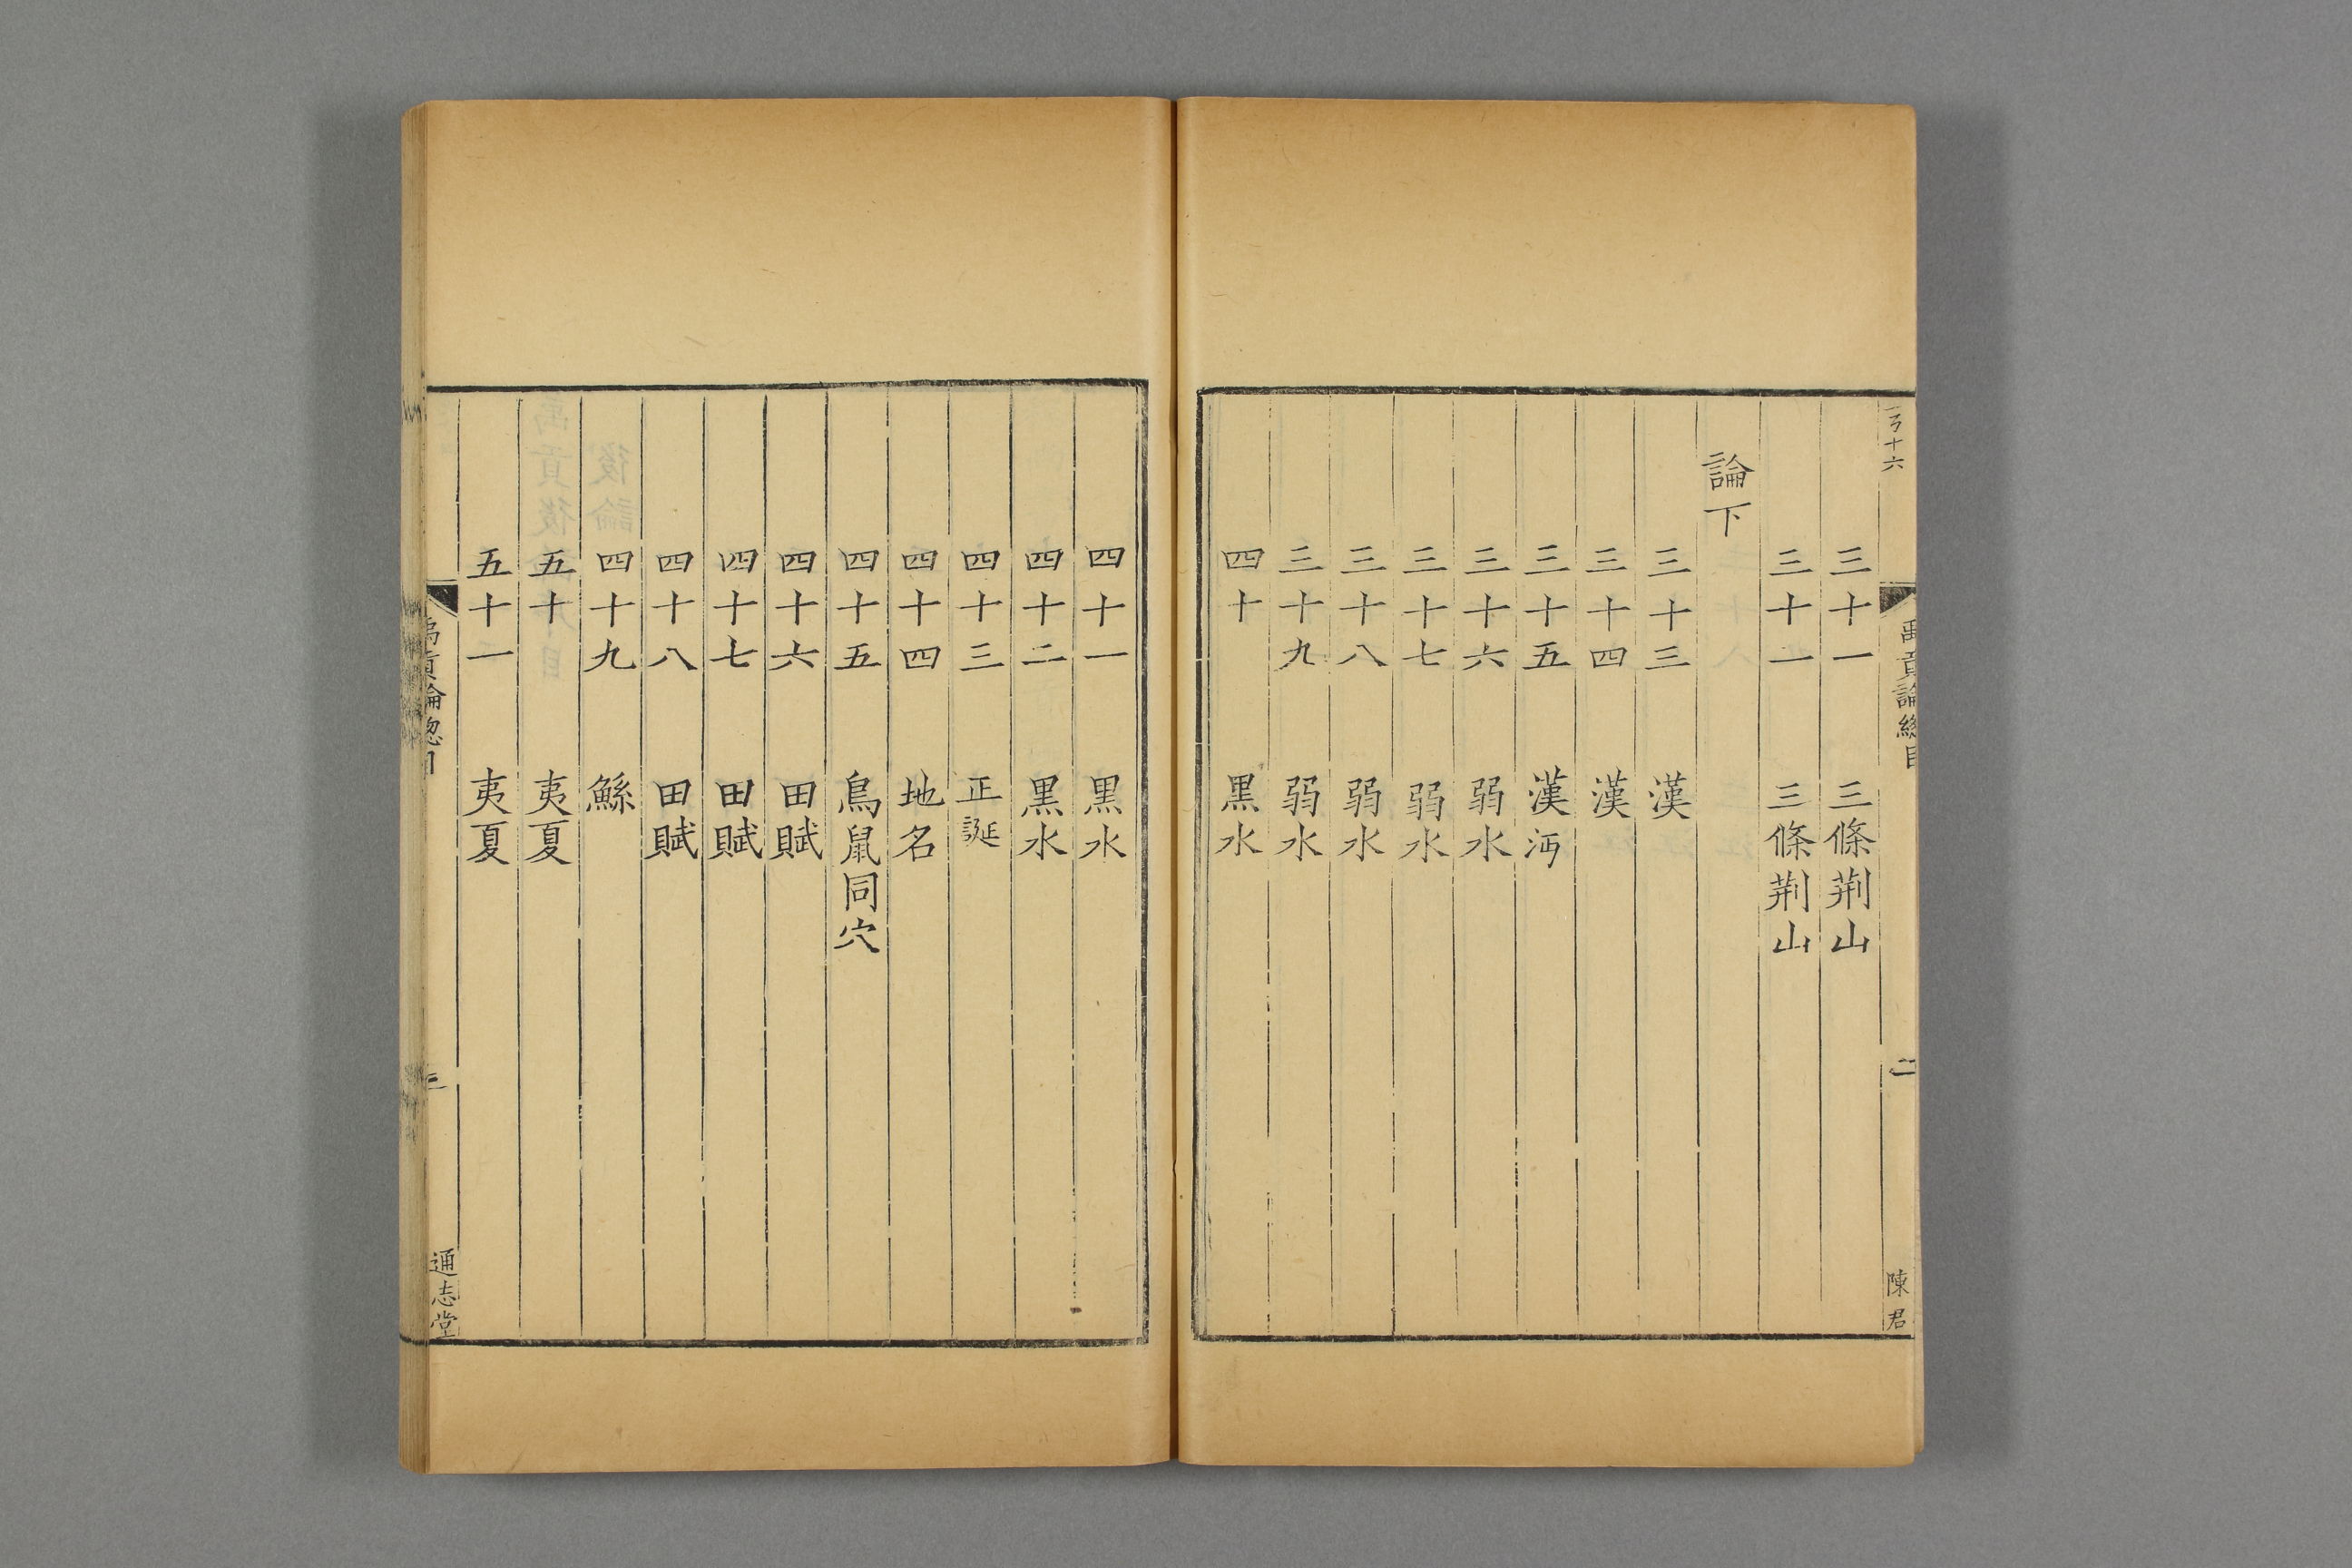 禹貢論總目 二 陳君
三十一 三條荆山
三十一 三條荆山
論下
三十三 漢
三十四 漢
三十五 漢沔
三十六 弱水
三十七 弱水
三十八 弱水
三十九 弱水
四十 黑水
四十一 黑水
四十二 黑水
四十三 正誕
四十四 地名
四十五 鳥鼠同穴
四十六 田賦
四十七 田賦
四十八 田賦
四十九 鯀
五十 夷夏
五十一 夷夏
禹貢論總目 三 通志堂